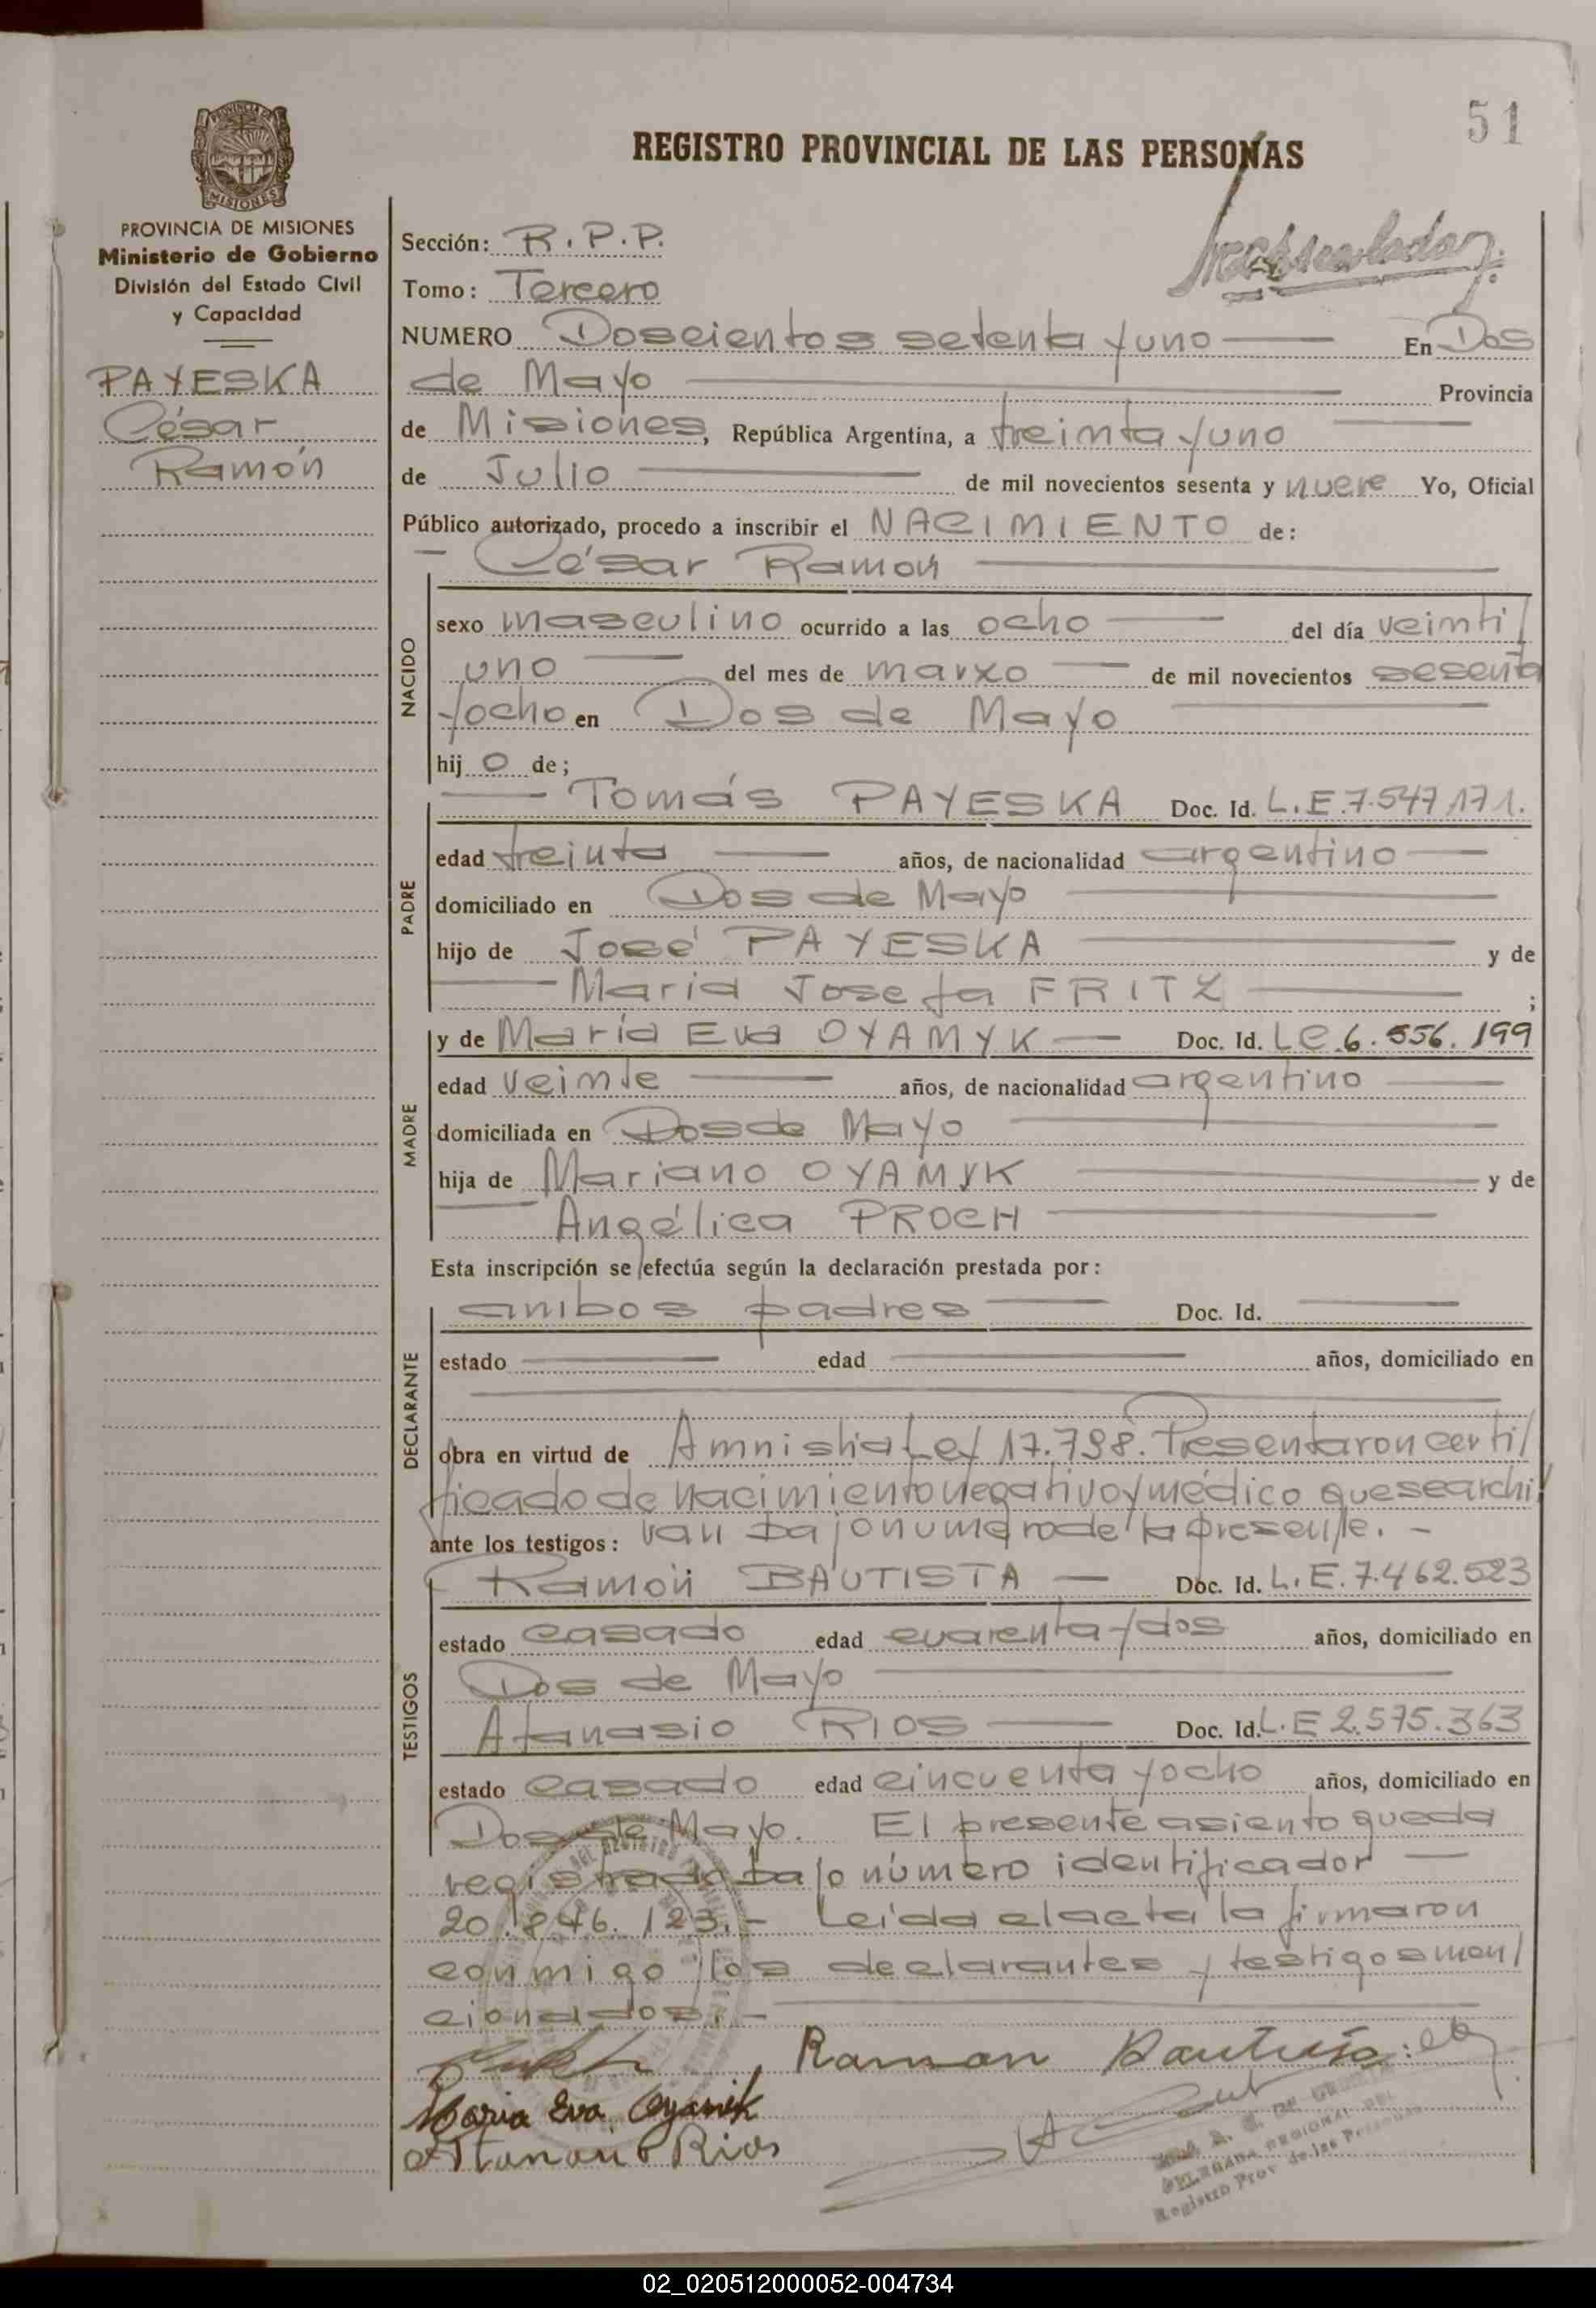 51
REGISTRO PROVINCIAL DE LAS PERSONAS
PROVINCIA DE MISIONES
Ministerio de Gobierno
División del Estado Civil
y Capacidad
PAYESKA
César
Ramón
Sección: R.P.P.
Tomo: Tercero
NUMERO Doscientos setenta y uno En Dos
de Mayo Provincia
de Misiones, República Argentina, a treinta y uno
de Julio de mil novecientos sesenta y nueve Yo, Oficial
Público autorizado, procedo a inscribir el NACIMIENTO de:
César Ramón
NACIDO
sexo masculino ocurrido a las ocho del día veinti/
uno del mes de marzo de mil novecientos sesenta
y ocho en Dos de Mayo
hijo de;
PADRE
Tomás PAYESKA Doc. Id. L.E.7.547.171.
edad treinta años, de nacionalidad argentino
domiciliado en Dos de Mayo
hijo de José PAYESKA y de
María Josefa FRITZ ;
MADRE
y de María Eva OYAMYK Doc. Id. LC.6.556.199
edad veinte años, de nacionalidad argentino
domiciliada en Dos de Mayo
hija de Mariano OYAMYK y de
Angélica PROCH
Esta inscripción se efectúa según la declaración prestada por:
DECLARANTE
ambos padres Doc. Id.
estado edad años, domiciliado en
obra en virtud de Amnistia Ley 17.798. Presentaron certi/
ficado de nacimiento negativo y médico que se archi/
ante los testigos: van bajo numero de la presente.-
TESTIGOS
Ramón BAUTISTA Doc. Id. L.E.7.462.523
estado casado edad cuarenta y dos años, domiciliado en
Dos de Mayo
Atanasio RIOS Doc. Id. L.E 2.575.363
estado casado edad cincuenta y ocho años, domiciliado en
Dos de Mayo. El presente asiento queda
registrado bajo número identificador
20.846.123.- Leída el acta la firmaron
conmigo los declarantes y testigos men/
cionados.-
Ramon Bautista
Maria Eva Oyamik
Atanasio Rios
Registro Prov. de las Personas
02_020512000052-004734